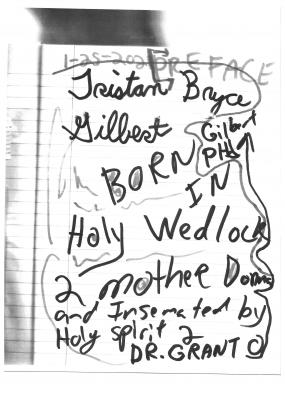 1-25-202 PREFACE
Tristan Bryce
Gilbert Gilbert
PHD
BORN
IN
Holy Wedlock
2 mother Donna
and Insemated by
Holy spirit 2
DR. GRANT